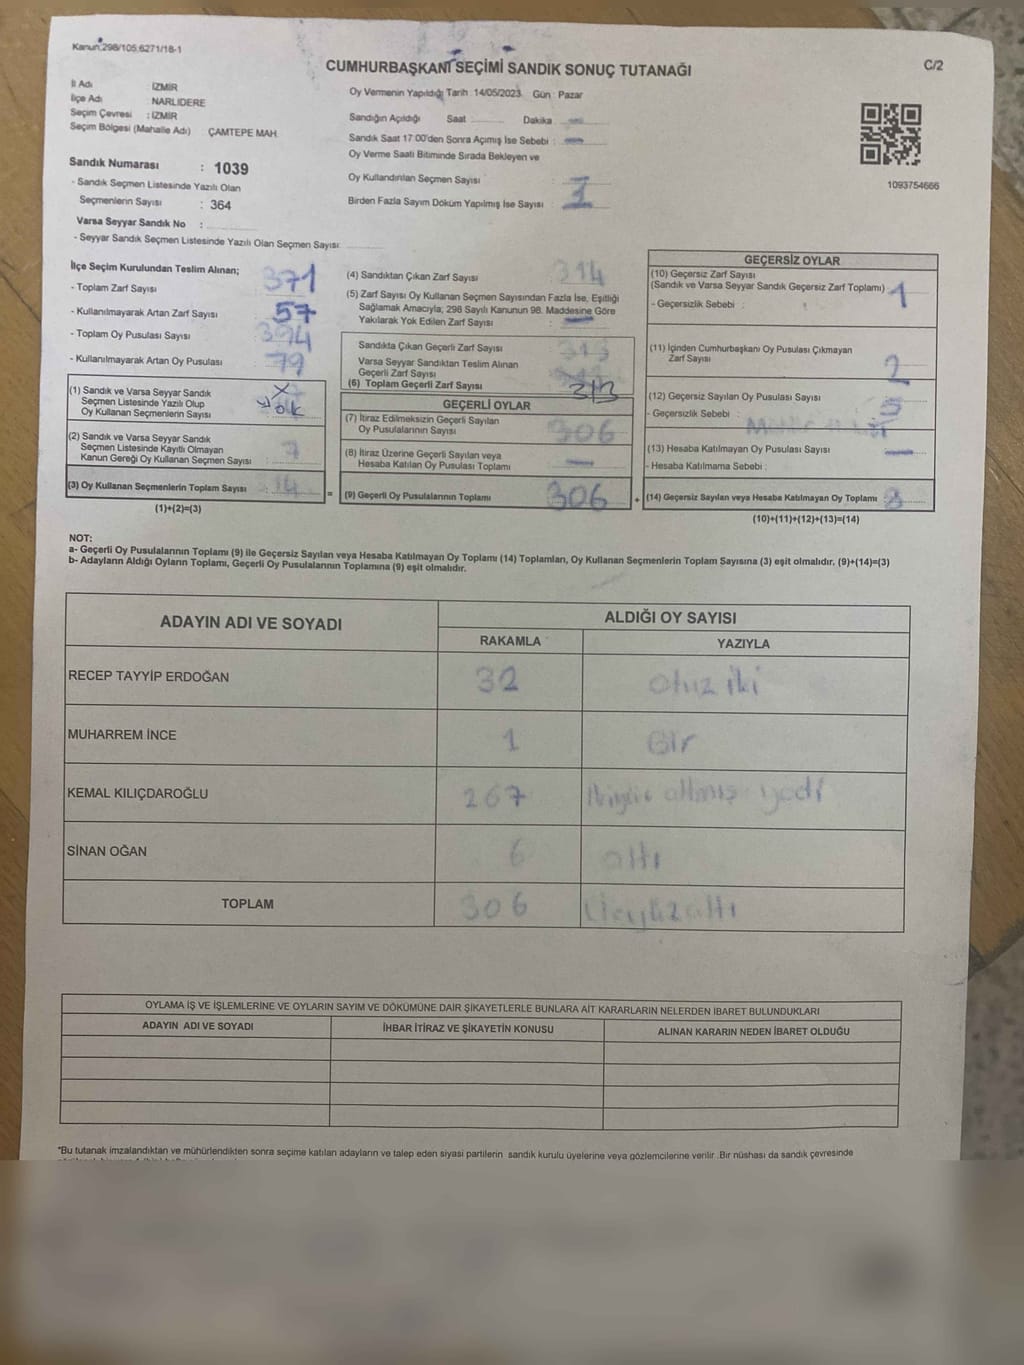 Kanun:298/105;6271/18-1
C/2
CUMHURBAŞKANI SEÇİMİ SANDIK SONUÇ TUTANAĞI
İl Adı İZMİR
İlçe Adı NARLIDERE
Seçim Çevresi : İZMİR
Seçim Bölgesi (Mahalle Adı) ÇAMTEPE MAH.
Sandık Numarası : 1039
- Sandık Seçmen Listesinde Yazılı Olan
Seçmenlerin Sayısı : 364
Varsa Seyyar Sandık No :
- Seyyar Sandık Seçmen Listesinde Yazılı Olan Seçmen Sayısı:
Oy Vermenin Yapıldığı Tarih :14/05/2023 Gün : Pazar
Sandığın Açıldığı Saat Dakika
Sandık Saat 17:00'den Sonra Açımış İse Sebebi :
Oy Verme Saati Bitiminde Sırada Bekleyen ve
Oy Kullandırılan Seçmen Sayısı :
Birden Fazla Sayım Döküm Yapılmış İse Sayısı :
1093754666
İlçe Seçim Kurulundan Teslim Alınan;
- Toplam Zarf Sayısı 371
- Kullanılmayarak Artan Zarf Sayısı 57
- Toplam Oy Pusulası Sayısı
- Kullanılmayarak Artan Oy Pusulası 79
(1) Sandık ve Varsa Seyyar Sandık
Seçmen Listesinde Yazılı Olup
Oy Kullanan Seçmenlerin Sayısı
(2) Sandık ve Varsa Seyyar Sandık
Seçmen Listesinde Kayıtlı Olmayan
Kanun Gereği Oy Kullanan Seçmen Sayısı : 7
(3) Oy Kullanan Seçmenlerin Toplam Sayısı :
(1)+(2)=(3)
=
(4) Sandıktan Çıkan Zarf Sayısı 314
(5) Zarf Sayısı Oy Kullanan Seçmen Sayısından Fazla İse, Eşitliği
Sağlamak Amacıyla; 298 Sayılı Kanunun 98. Maddesine Göre
Yakılarak Yok Edilen Zarf Sayısı :
Sandıkta Çıkan Geçerli Zarf Sayısı 313
Varsa Seyyar Sandıktan Teslim Alınan
Geçerli Zarf Sayısı
(6) Toplam Geçerli Zarf Sayısı 313
GEÇERLİ OYLAR
(7) İtiraz Edilmeksizin Geçerli Sayılan
Oy Pusulalarının Sayısı 306
(8) İtiraz Üzerine Geçerli Sayılan veya
Hesaba Katılan Oy Pusulası Toplamı
(9) Geçerli Oy Pusulalarının Toplamı 306
+
GEÇERSİZ OYLAR
(10) Geçersiz Zarf Sayısı
(Sandık ve Varsa Seyyar Sandık Geçersiz Zarf Toplamı) 1
- Geçersizlik Sebebi :
(11) İçinden Cumhurbaşkanı Oy Pusulası Çıkmayan
Zarf Sayısı 2
(12) Geçersiz Sayılan Oy Pusulası Sayısı 5
- Geçersizlik Sebebi :
(13) Hesaba Katılmayan Oy Pusulası Sayısı
- Hesaba Katılmama Sebebi :
(14) Geçersiz Sayılan veya Hesaba Katılmayan Oy Toplamı 8
(10)+(11)+(12)+(13)=(14)
NOT:
a- Geçerli Oy Pusulalarının Toplamı (9) ile Geçersiz Sayılan veya Hesaba Katılmayan Oy Toplamı (14) Toplamları, Oy Kullanan Seçmenlerin Toplam Sayısına (3) eşit olmalıdır. (9)+(14)=(3)
b- Adayların Aldığı Oyların Toplamı, Geçerli Oy Pusulalarının Toplamına (9) eşit olmalıdır.
ADAYIN ADI VE SOYADI ALDIĞI OY SAYISI
RAKAMLA YAZIYLA
RECEP TAYYİP ERDOĞAN 32 otuz iki
MUHARREM İNCE 1 Bir
KEMAL KILIÇDAROĞLU 267 altmış yedi
SİNAN OĞAN 6 altı
TOPLAM 306 Üçyüzaltı
OYLAMA İŞ VE İŞLEMLERİNE VE OYLARIN SAYIM VE DÖKÜMÜNE DAİR ŞİKAYETLERLE BUNLARA AİT KARARLARIN NELERDEN İBARET BULUNDUKLARI
ADAYIN ADI VE SOYADI İHBAR İTİRAZ VE ŞİKAYETİN KONUSU ALINAN KARARIN NEDEN İBARET OLDUĞU
*Bu tutanak imzalandıktan ve mühürlendikten sonra seçime katılan adayların ve talep eden siyasi partilerin sandık kurulu üyelerine veya gözlemcilerine verilir .Bir nüshası da sandık çevresinde